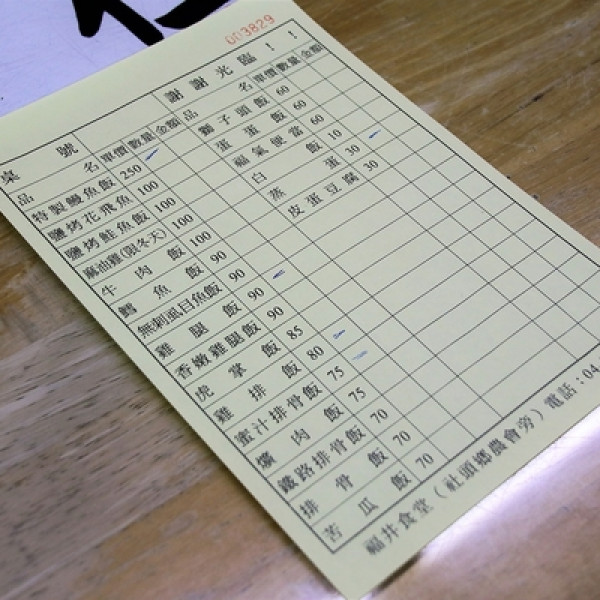 003829
謝謝光臨！！
桌號
品名 單價 數量 金額 品名 單價 數量 金額
特製鰻魚飯 250 獅子頭飯 60
鹽烤花飛魚 100 蛋蛋飯 60
鹽烤鮭魚飯 100 福氣便當 60
麻油雞(限冬天) 100 白飯 10
牛肉飯 100 蒸蛋 30
鱈魚飯 90 皮蛋豆腐 30
無刺虱目魚飯 90
雞腿飯 90
香嫩雞腿飯 90
虎掌飯 85
雞排飯 80
蜜汁排骨飯 75
爌肉飯 75
鐵路排骨飯 70
排骨飯 70
苦瓜飯 70
福井食堂（社頭鄉農會旁）電話：04